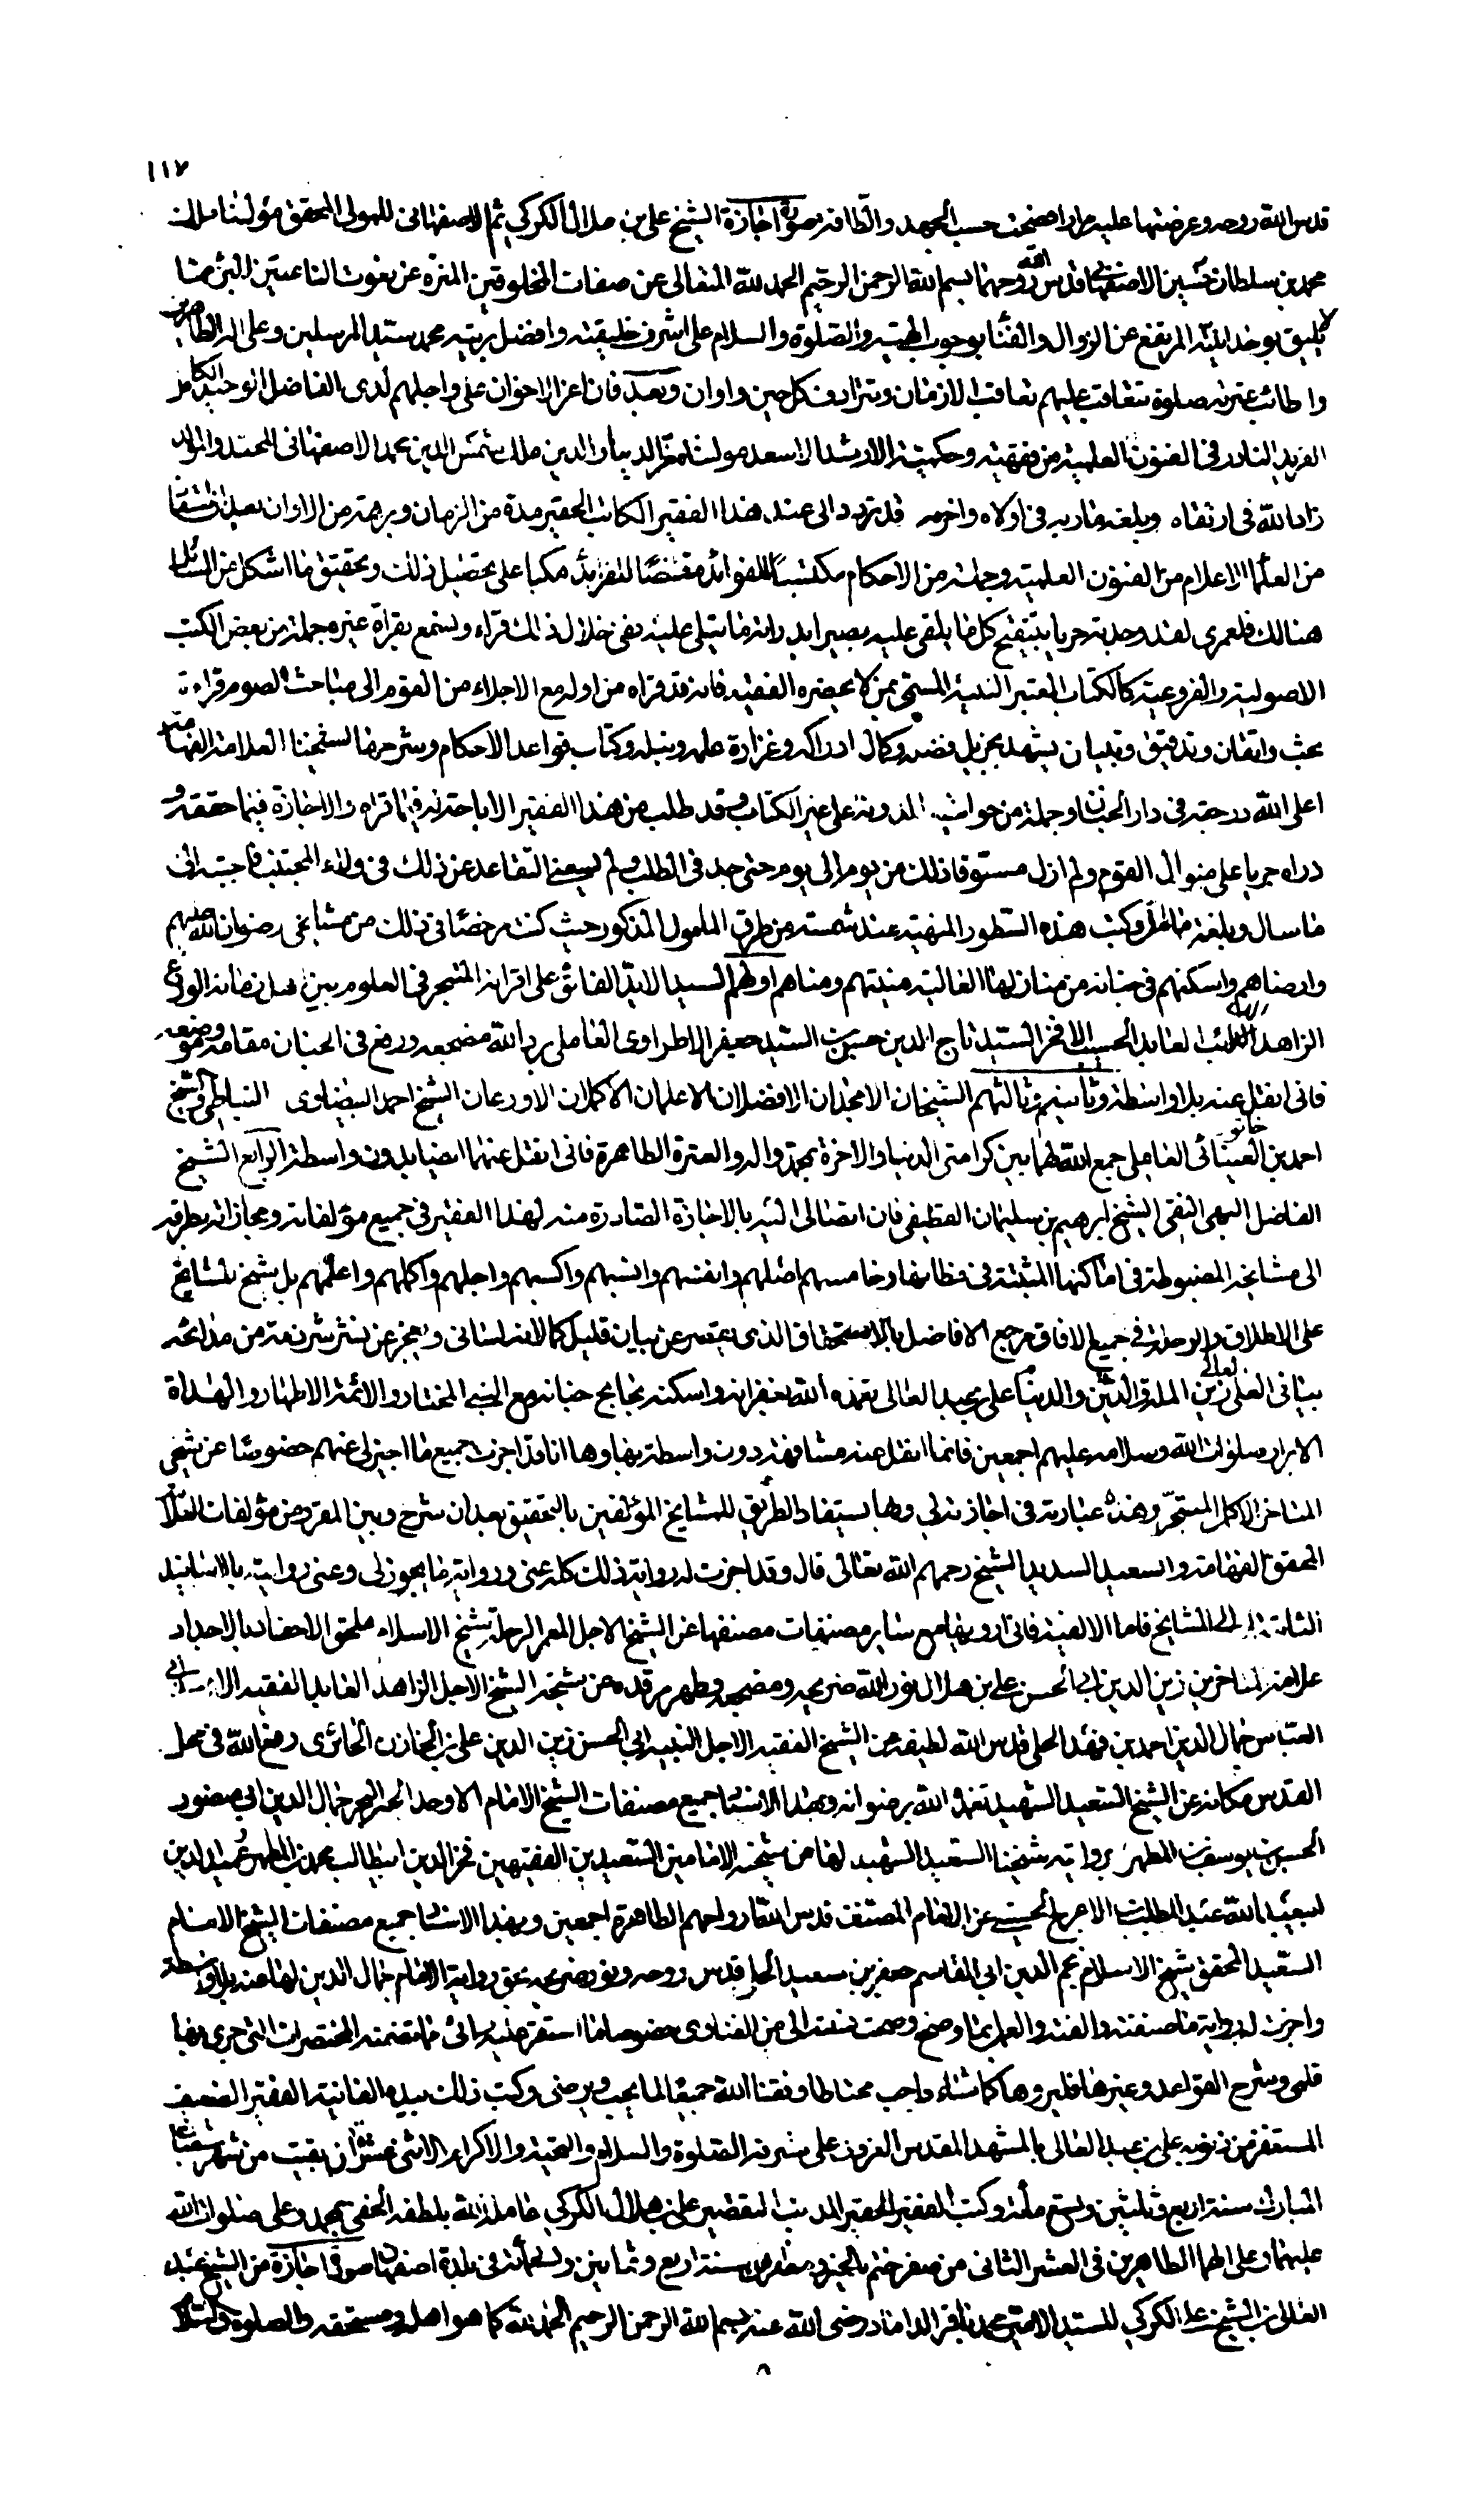 ١١٧
قدس الله روحه وعرضتها عليه مرارا فصحت حسب الجهد والطاقة صورة اجازة الشيخ علي بن هلال الكركي ثم الاصفهاني للمولى المحقق مولينا ملك
محمد بن سلطان حسين الاصفهاني قدس الله روحهما بسم الله الرحمن الرحيم الحمد لله المتعالى عن صفات المخلوقين المنزه عن نعوت الناعتين المبرء مما
لا يليق بوحدانيته المرتفع عن الزوال والفناء بوجوب الهيته والصلوة والسلام على اشرف خليقته وافضل بريته محمد سيد المرسلين وعلى اله الطاهرين
واطائب عترته صلوة تتعاقب عليهم تعاقب الازمان وتترادف كل حين واوان وبعد فان اعز الاخوان على واجلهم لدى الفاضل الاوحد الكامل
الفريد النادر في الفنون العلمية من فقهية وحكمية الارشد الاسعد مولينا الدين ملك بن شمس الدين محمد الاصفهاني المحتد والمولد
زاد الله في ارتقاه وبلغه ماربه في اولاه واخريه قد تردد الى عند هذا الفقير الكاتب الحقير مدة من الزمان وبرهة من الاوان بعد ان
من العلماء الاعلام من الفنون العلمية وجملة من الاحكام مكتسبا للفوائد مقتنصا للفرايد مكبا على تحصيل ذلك وتحقيق ما اشكل من المسائل
هنالك فلعمرى لقد وجدته حريا بتنقيح كل ما يلقى عليه بصيرا بدراية ما يتلى عليه ففى خلال ذلك قراء وسمع بقراءة غيره جملة من بعض الكتب
الاصولية والفروعية كالكتاب المعتبر النبيه المسمى بمن لا يحضره الفقيه فانه قد قراه من اوله مع الاجلاء من القوم الى مباحث الصوم قراءة
بحث واتقان وتدقيق وتبيان يشهد بجزيل فضله وكمال ادراكه وغزارة علمه ونبله وكتاب قواعد الاحكام وشرحها لشيخنا العلامة الفهامة
اعلى الله درجته في دار الجنان وجملة من حواشيه المدونة على غير الكتاب وقد طلب من هذا الفقير الاباحة له فيما قراه والاجازة فيما حققه و
دراه جريا على منوال القوم ولم ازل مسوفا ذلك من يوم الى يوم حتى جد في الطلب ولم يسعنى التقاعد عن ذلك في ولاء المجتبى فاجبته الى
ما سال وبلغته ما امل وكتبت هذه السطور المنهية عند شمسه من طرق المامول المذكور حيث كنت مرخصا في ذلك من مشايخى رضوان الله عليهم
وارضاهم واسكنهم في جنانه من منازلها الغالية منيتهم ومناهم اولهم السيد الايد الفائق على اقرانه المتبحر في العلوم بين اهل زمانه الورع
الزاهد العابد الحسيب الافخر السيد تاج الدين حسن بن السيد جعفر الاطراوى العاملى برد الله مضجعه ورفع في الجنان مقامه وموضعه
فانى انقل عنه بلا واسطة وثانيهم وثالثهم الشيخان الامجدان الافضلان الاعلمان الاكملان الاورعان الشيخ احمد البيضاوى النباطى والشيخ
احمد بن خاتون العينائى العاملى جمع الله لهما بين كرامتى الدنيا والاخرة بمحمد واله والعترة الطاهرة فانى انقل عنهما ايضا بدون واسطة الرابع الشيخ
الفاضل البهى التقى الشيخ ابرهيم بن سليمان القطيفى فان اتصالى اليه بالاجازة الصادرة منه لهذا الفقير في جميع مؤلفاته ومجازاته بطرقه
الى مشايخه المضبوطة في اماكنها المثبتة في مظانها وخامسهم اجلهم وافقههم وانسبهم واكسبهم واجلهم واكملهم واعلمهم بل شيخ المشايخ
على الاطلاق والرحلة في جميع الافاق مرجع الافاضل بالاستحقاق الذى يقصر عن بيان قليل كمالاته لسانى ويعجز عن نشر شرذمة من مدائحه
بيانى العلى زين الملة والدين والدنيا على بن عبد العالى تغمده الله بغفرانه واسكنه بحابح جنانه مع النبى المختار والائمة الاطهار والهداة
الابرار صلوات الله وسلامه عليهم اجمعين فانما انقل عنه مشافهة دون واسطة بها وها انا قد اجزت جميع ما اجيز لى عنهم خصوصا عن شيخى
المتاخر الاكمل المتبحر وهذه عبارته في اجازته لى وبها يستفاد الطريق للمشايخ المؤلفين بالتحقيق بعد ان شرح وبين المقروء من مؤلفات العلامة
المحقق الفهامة والسعيد السديد الشيخ رحمهم الله تعالى قال وقد اجزت له رواية ذلك كله عنى ورواية ما يجوز لى وعنى روايته بالاسانيد
الثابتة الى المشايخ فاما الالفية فانى ارويها مع ساير مصنفات مصنفها عن الشيخ الاجل المعمر الرحلة شيخ الاسلام ملحق الاحفاد بالاجداد
علامة المتاخرين زين الدين ابى الحسن على بن هلال نور الله ضريحه ومضجعه وطهر مرقده عن شيخه الشيخ الاجل الزاهد العابد الفقيه ابى
العباس جمال الدين احمد بن فهد الحلى قدس الله لطيفه عن الشيخ الفقيه الاجل النبيه ابى الحسن زين الدين على بن الخازن الحائرى رفع الله في محل
القدس مكانه عن الشيخ السعيد الشهيد تغمده الله برضوانه وبهذا الاسناد جميع مصنفات الشيخ الامام الاوحد البحر جمال الدين ابى منصور
الحسن بن يوسف بن المطهر برواية شيخنا السعيد الشهيد لها من شيخيه الامامين السعيدين الفقيهين فخر الدين ابيطالب محمد بن المطهر وعميد الدين
ابى عبد الله عبد المطلب بن الاعرج الحسينى عن الامام المصنف قدس الله ارواحهم الطاهرة اجمعين وبهذا الاسناد جميع مصنفات الشيخ الامام
السعيد المحقق شيخ الاسلام نجم الدين ابى القاسم جعفر بن سعيد الحلى قدس روحه ونور ضريحه بحق رواية الامام جمال الدين لها عنه بلا واسطة
واجزت له رواية ما صنفته والفته والعمل بما وضح وصحت نسبته الى من الفتاوى خصوصا ما استقر عليه رائى مما تضمنه المختصرات التى جرى بها
قلمى وشرح القواعد وغيرها فليروها كما شاء واحب محتاطا وفقنا الله جميعا لما يحب ويرضى وكتب ذلك بيده الفانية الفقير الضعيف
المستغفر من ذنوبه على بن عبد العالى بالمشهد المقدس الغروى على مشرفه الصلوة والسلام والتحية والاكرام لاثنى عشر ان بقيت من شهر شعبان
المبارك سنة اربع وثلثين وتسع مائة وكتب الفقير الحقير المذنب التقصير على بن هلال الكركى عامله الله بلطفه الخفى بمحمد وعلى صلوات الله
عليهما وعلى الهما الطاهرين في العشر الثانى من صفر ختم بالخير وظفر من سنة اربع وثمانين وتسعمائة في بلدة اصفهان صورة اجازة من الشيخ عبد
العالى بن الشيخ على الكركى للسيد الامير محمد باقر الداماد رضى الله عنه بسم الله الرحمن الرحيم الحمد لله كما هو اهله ومستحقه والصلوة والسلام